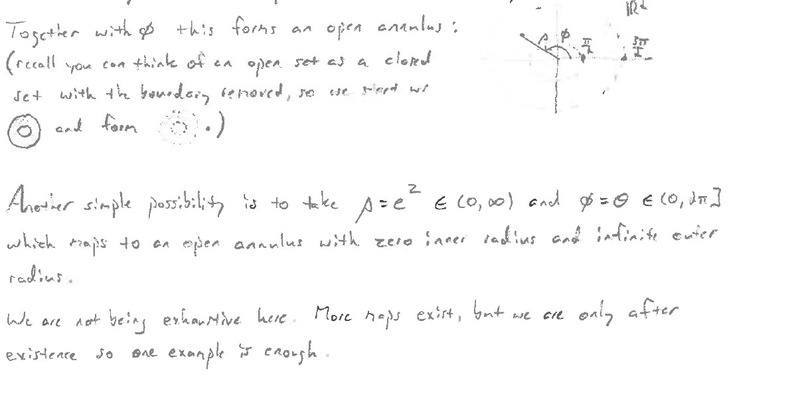 Together with ϕ this forms an open annulus:
(recall you can think of an open set as a closed
set with the boundary removed, so we start w/
and form .)
ℝ²
ρ ϕ π/2 3π/2
Another simple possibility is to take ρ=e² ∈ (0,∞) and ϕ=θ ∈ (0,2π]
which maps to an open annulus with zero inner radius and infinite outer
radius.
We are not being exhaustive here. More maps exist, but we are only after
existence so one example is enough.